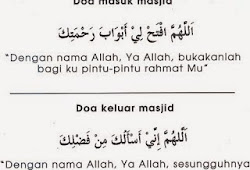 Doa masuk masjid
اَللَّهُمَّ افْتَحْ لِي أَبْوَابَ رَحْمَتِكَ
“Dengan nama Allah, Ya Allah, bukakanlah
bagi ku pintu-pintu rahmat Mu”
Doa keluar masjid
اَللَّهُمَّ إِنِّي أَسْأَلُكَ مِنْ فَضْلِكَ
“Dengan nama Allah, Ya Allah, sesungguhnya